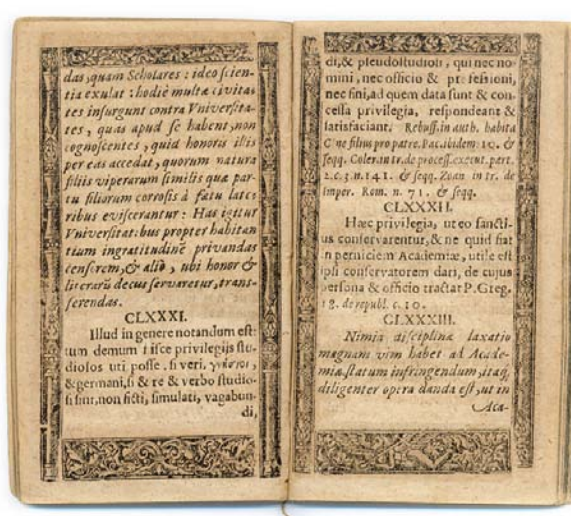 das, quam Scholares: ideo scien-
tia exulat: hodie multæ civita-
tes insurgunt contra Vniversita-
tes, quas apud se habent, non
cognoscentes, quid honoris illis
per eas accedat, quorum natura
filiis viperarum similis quæ par-
tu filiorum corrosis à fœtu late-
ribus eviscerantur: Has igitur
Vniversitatibus propter habitan
tium ingratitudinẽ privandas
censerem, & aliò, ubi honor &
literarũ decus servaretur, trans-
ferendas.
CLXXXI.
Illud in genere notandum est:
tum demum hisce privilegijs stu-
diosos uti posse, si veri, γνήσιοι,
& germani, si & re & verbo studio-
si sint, non ficti, simulati, vagabun-
di,
di, & pseudostudiosi, qui nec no-
mini, nec officio & professioni,
nec fini, ad quem data sunt & con-
cessa privilegia, respondeant &
satisfaciant. Rebuff. in auth. habita
C ne filius pro patre. Pac. ibidem. 10. &
seqq. Coler. in tr. de process. execut. part.
2. c. 3. n. 141. & seqq. Zoan in tr. de
imper. Rom. n. 71. & seqq.
CLXXXII.
Hæc privilegia, ut eo sancti-
us conservarentur, & ne quid fiat
in perniciem Academiæ, utile est
ipsi conservatorem dari, de cujus
persona & officio tractat P. Greg.
18. de republ. c. 10.
CLXXXIII.
Nimia disciplinæ laxatio
magnam vim habet ad Acade-
miæ statum infringendum, itaq;
diligenter opera danda est, ut in
Aca-